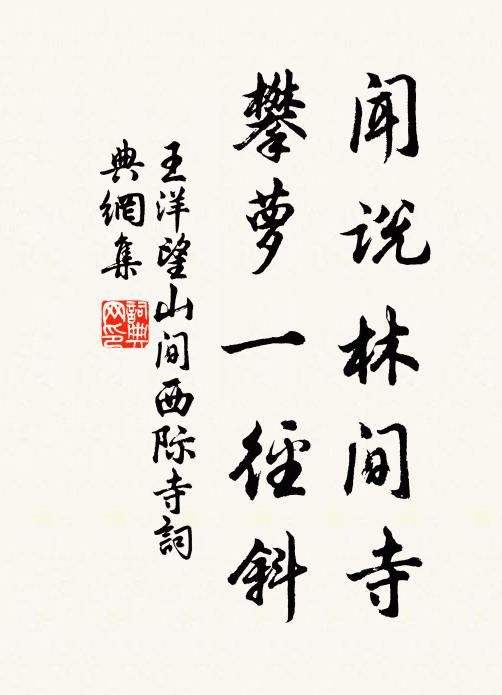 闻说林间寺
攀萝一徑斜
王洋望山间西际寺詞
典網集
詞典
网印